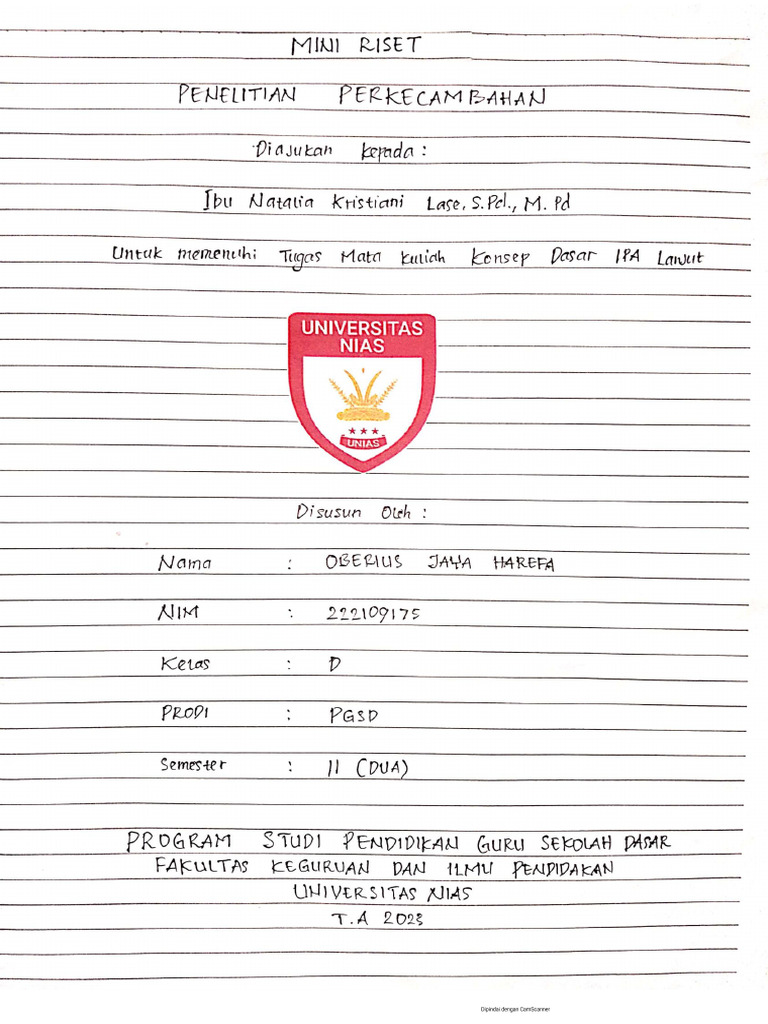 MINI RISET
PENELITIAN PERKECAMBAHAN
Diajukan kepada :
Ibu Natalia Kristiani Lase, S.Pd., M. Pd
Untuk memenuhi Tugas Mata kuliah Konsep Dasar IPA Lanjut
UNIVERSITAS
NIAS
UNIAS
Disusun Oleh :
Nama : OBERIUS JAYA HAREFA
NIM : 222109175
Kelas : D
PRODI : PGSD
Semester : II (DUA)
PROGRAM STUDI PENDIDIKAN GURU SEKOLAH DASAR
FAKULTAS KEGURUAN DAN ILMU PENDIDAKAN
UNIVERSITAS NIAS
T.A 2023
Dipindai dengan CamScanner